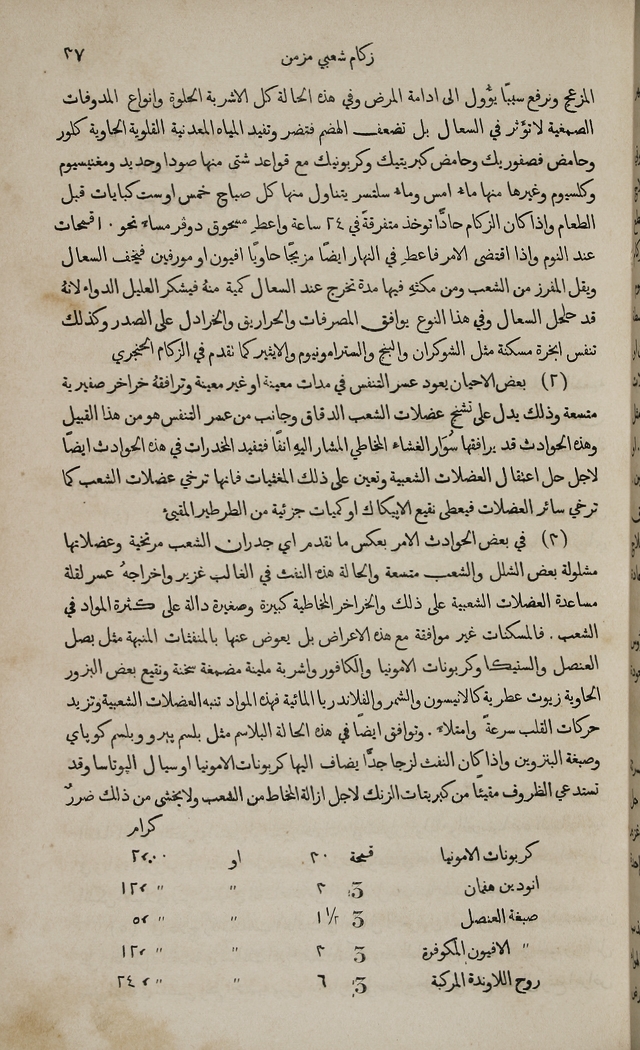 زكام شعبي مزمن ٣٧
المزعج ونرفع سببًا يؤُول الى ادامة المرض وفي هذه الحالة كل الاشربة الحلوة وانواع المدوفات
الصمغية لا تؤَثر في السعال بل تضعف الهضم فتضر وتفيد المياه المعدنية القلوية الحاوية كلور
وحامض فصفوريك وحامض كبريتيك وكربونيك مع قواعد شتى منها صودا وحديد ومغنيسيوم
وكلسيوم وغيرها منها ماء امس وماء سلتسر يتناول منها كل صباح خمس او ست كبايات قبل
الطعام واذا كان الزكام حادًّا توخذ متفرقة في ٢٤ ساعة واعطِ مسحوق دوڤر مساءً نحو ١٠ قمحات
عند النوم واذا اقتضى الامر فاعطِ في النهار ايضًا مزيجًا حاويًا افيون او مورفين فيخف السعال
ويقل المفرز من الشعب ومن مكثهِ فيها مدة تخرج عند السعال كمية منهُ فيشكر العليل الدواء لانهُ
قد حلحل السعال وفي هذا النوع يوافق المصرفات والحراريق والخرادل على الصدر وكذلك
تنفس ابخرة مسكنة مثل الشوكران والبنج والسترامونيوم والايثير كما تقدم في الزكام الحنجري
(٢) بعض الاحيان يعود عسر التنفس في مدات معينة او غير معينة وترافقهُ خراخر صفيرية
متسعة وذلك يدل على تشنج عضلات الشعب الدقاق وجانب من عسر التنفس هو من هذا القبيل
وهذه الحوادث قد يرافقها سُوَار الغشاء المخاطي المشار اليه انفًا فتفيد المخدرات في هذه الحوادث ايضًا
لاجل حل اعتقال العضلات الشعبية وتعين على ذلك المغثيات فانها ترخي عضلات الشعب كما
ترخي سائر العضلات فيعطى نقيع الايپيكاك او كميات جزئية من الطرطير المقيئ
(٣) في بعض الحوادث الامر بعكس ما تقدم اي جدران الشعب مرتخية وعضلاتها
مشلولة بعض الشلل والشعب متسعة والحالة هذه النفث في الغالب غزير واخراجهُ عسر لقلة
مساعدة العضلات الشعبية على ذلك والخراخر المخاطية كبيرة وصغيرة دالة على كثرة المواد في
الشعب . فالمسكنات غير موافقة مع هذه الاعراض بل يعوض عنها بالمنفثات المنبهة مثل بصل
العنصل والسنيكا وكربونات الامونيا والكافور واشربة ملينة مضمغة سخنة ونقيع بعض البزور
الحاوية زيوت عطرية كالانيسون والشمر والفلاندريا المائية فهذه المواد تنبه العضلات الشعبية وتزيد
حركات القلب سرعةً وامتلاءً . وتوافق ايضًا في هذه الحالة البلاسم مثل بلسم پيرو وبلسم كوپاي
وصبغة البنزوين واذا كان النفث لزجا جدًّا يضاف اليها كربونات الامونيا او سيال الپوتاسا وقد
تستدعي الظروف مقيئًا من كبريتات الزنك لاجل ازالة المخاط من الشعب ولا يخشى من ذلك ضررٌ
كرام
كربونات الامونيا قمحة ٣٠ او ٢٬٠٠
انودين هفمان ʒ ٣ " " ١٢٬
صبغة العنصل ʒ ١ ١/٢ " " ٥٬
" الافيون المكوفرة ʒ ٣ " " ١٢٬
روح اللاوندة المركبة ʒ ٦ " " ٢٤٬